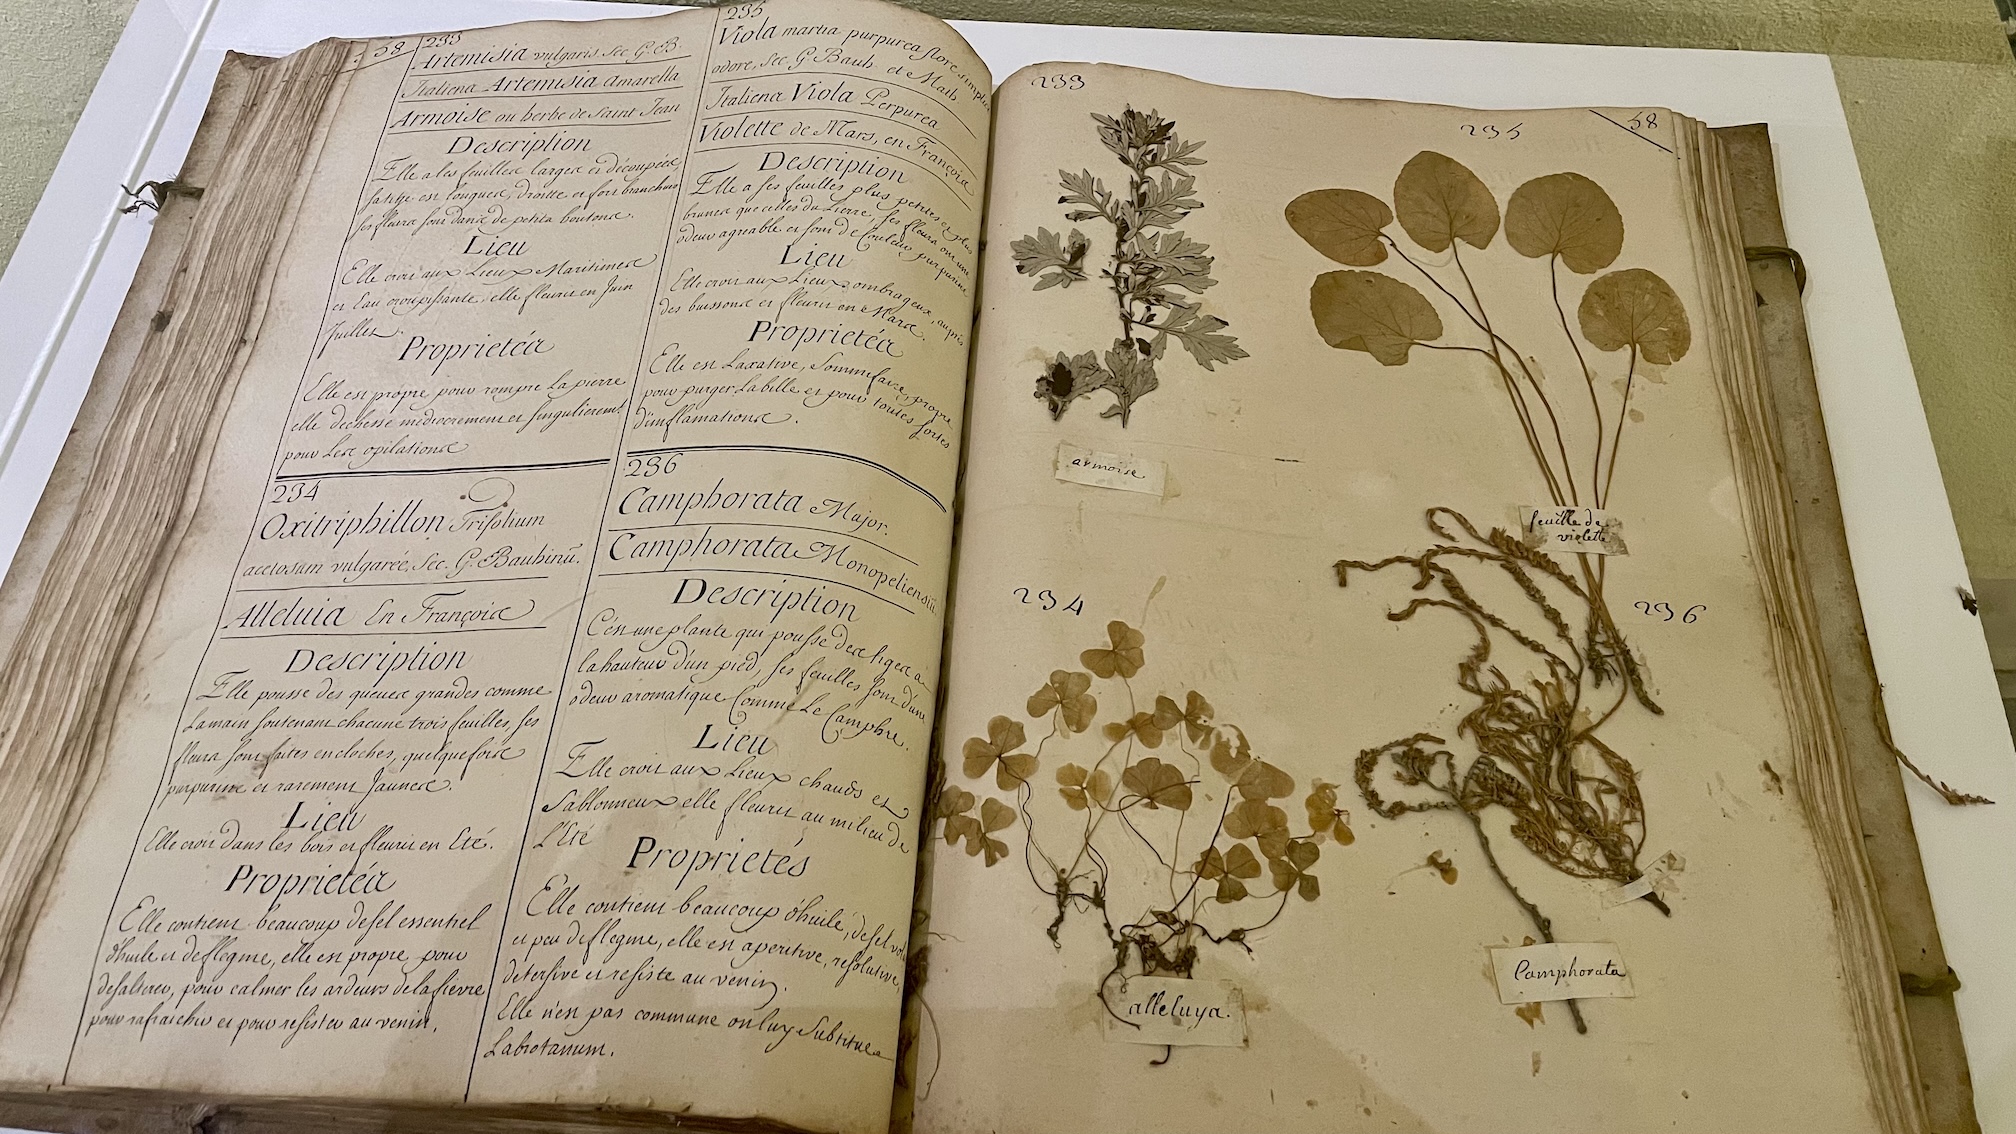 58
233
Artemisia vulgaris Sec. G. B.
Italiena Artemisia amarella
Armoise ou herbe de Saint Jean
Description
Elle a les feuillea largea et découpéea
sa tige est longuea, droitte et fort branchue
ses fleura sont dana de petita boutona.
Lieu
Elle croit aux Lieux Maritimea
et Eau croupissante, elle fleurit en Juin
Juillet.
Proprietéa
Elle est propre pour rompre la pierre
elle desseche mediocrement et singulierem.t
pour Lea opilationa
234
Oxitriphillon Trifolium
acetosum vulgarée, Sec. G. Bauhinū.
Alleluia En Françoia
Description
Elle pousse des queuea grandes comme
La main soutenant chacune trois feuilles, ses
fleura sont faites en cloches, quelquefoia
purpurine et rarement Jaunea.
Lieu
Elle croit dans les bois et fleurit en Eté.
Proprietéa
Elle contient beaucoup de sel essentiel
d'huile et de flegme, elle est propre pour
desalterer, pour calmer les ardeurs de la fievre
pour rafraichir et pour resister au venin.
235
Viola martia purpurea flore simplici
odore, Sec. G. Bauh. et Math.
Italiena Viola Perpurea
Violette de Mars, en Françoia
Description
Elle a ses feuilles plus petites et plus
brunea que celles du Lierre, ses fleura ont une
odeur agreable et sont de Couleur purpurine
Lieu
Elle croit aux Lieux ombrageux, auprés
des buissona et fleurit en Mara.
Proprietéa
Elle est Laxative, Somnifaire, propre
pour purger La bille et pour toutes sortes
d'inflamationa.
236
Camphorata Major.
Camphorata Monopeliensiū
Description
C'est une plante qui pousse dea tigea à
la hauteur d'un pied, ses feuilles sont d'une
odeur aromatique Comme Le Camphre.
Lieu
Elle croit aux Lieux chauds et
Sablonneux elle fleurit au milieu de
L'Eté
Proprietés
Elle contient beaucoup d'huile, de sel vol
et peu de flegme, elle est aperitive, resolutive,
detersive et resiste au venin.
Elle n'est pas commune on luy Substitue
Labrotanum.
233
235
58
armoise
feuille de
violette
234
236
alleluya.
Camphorata